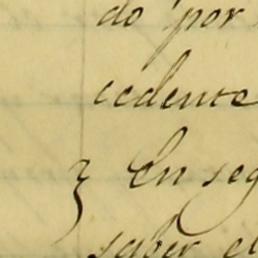 do por
cedente
En seg
saber el